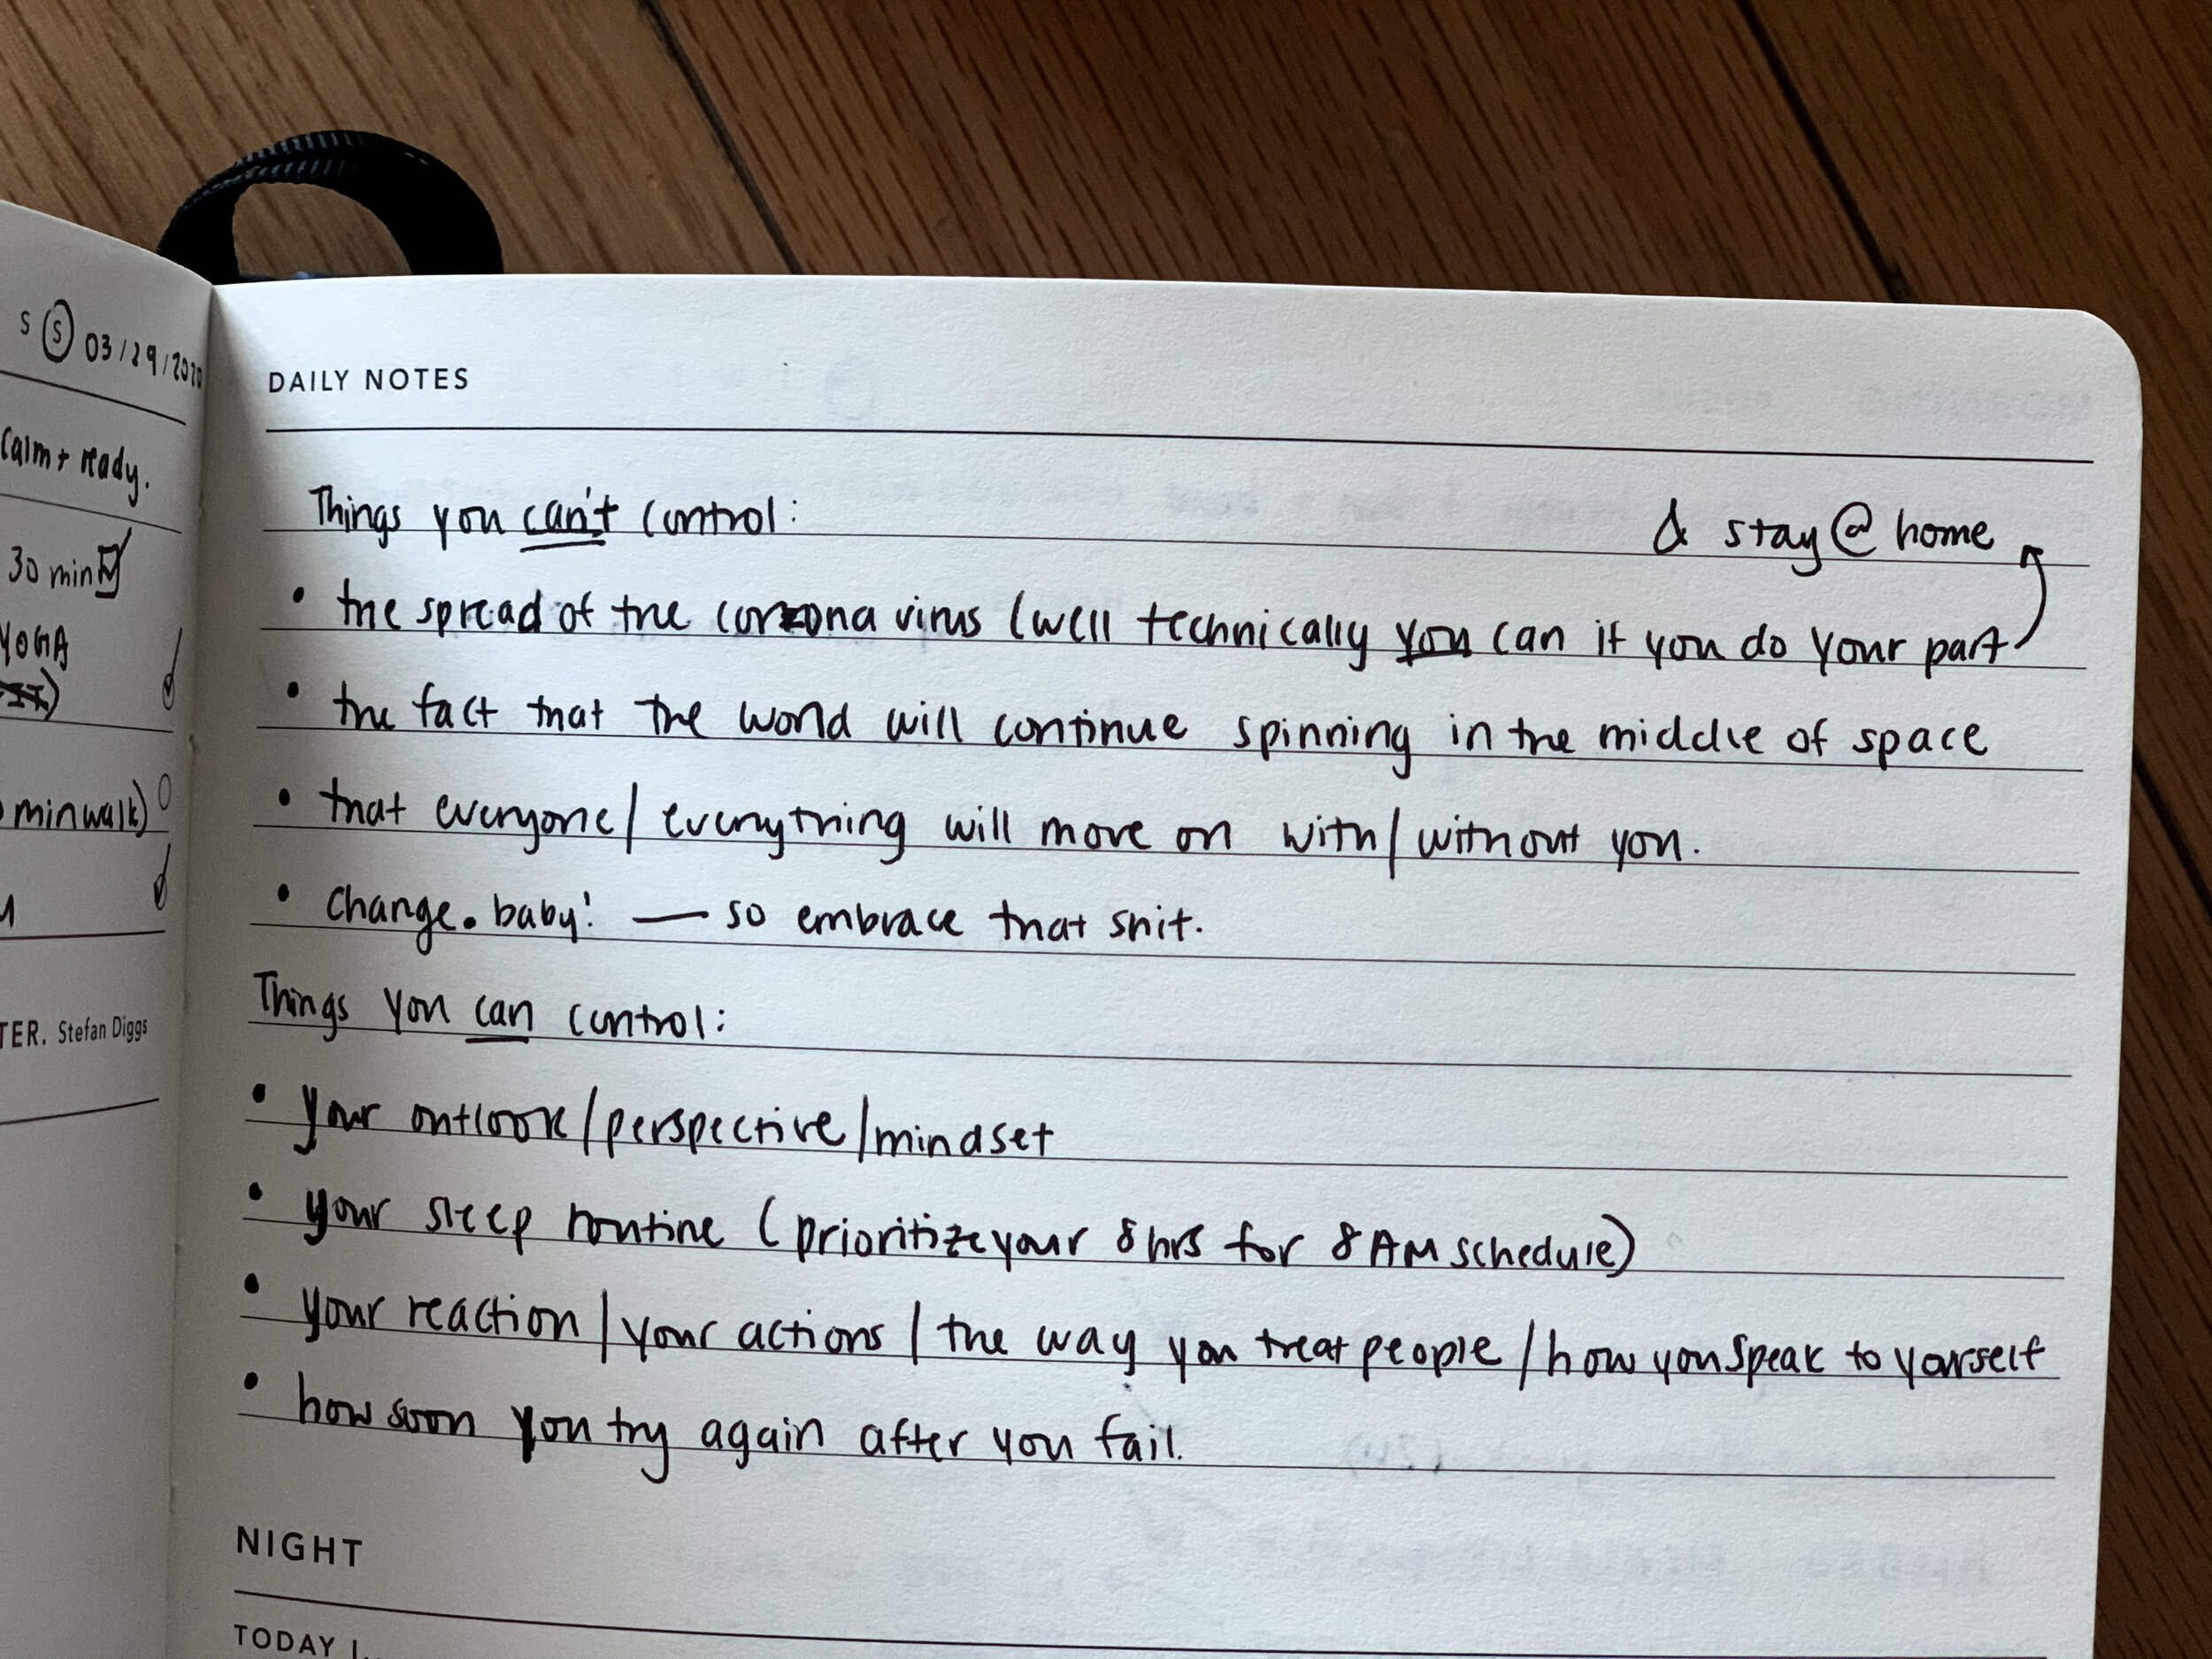 S S 03/29/2020
Calm + ready.
30 min
YOGA
min walk)
TER. Stefan Diggs
DAILY NOTES
Things you can't control:
• the spread of the corona virus (well technically you can if you do your part
& stay @ home
• the fact that the world will continue spinning in the middle of space
• that everyone/everything will move on with/without you.
• Change. baby! — so embrace that shit.
Things you can control:
• your outlook/perspective/mindset
• your sleep routine (prioritize your 8 hrs for 8 AM schedule)
• your reaction/your actions/the way you treat people/how you speak to yourself
• how soon you try again after you fail.
NIGHT
TODAY I...